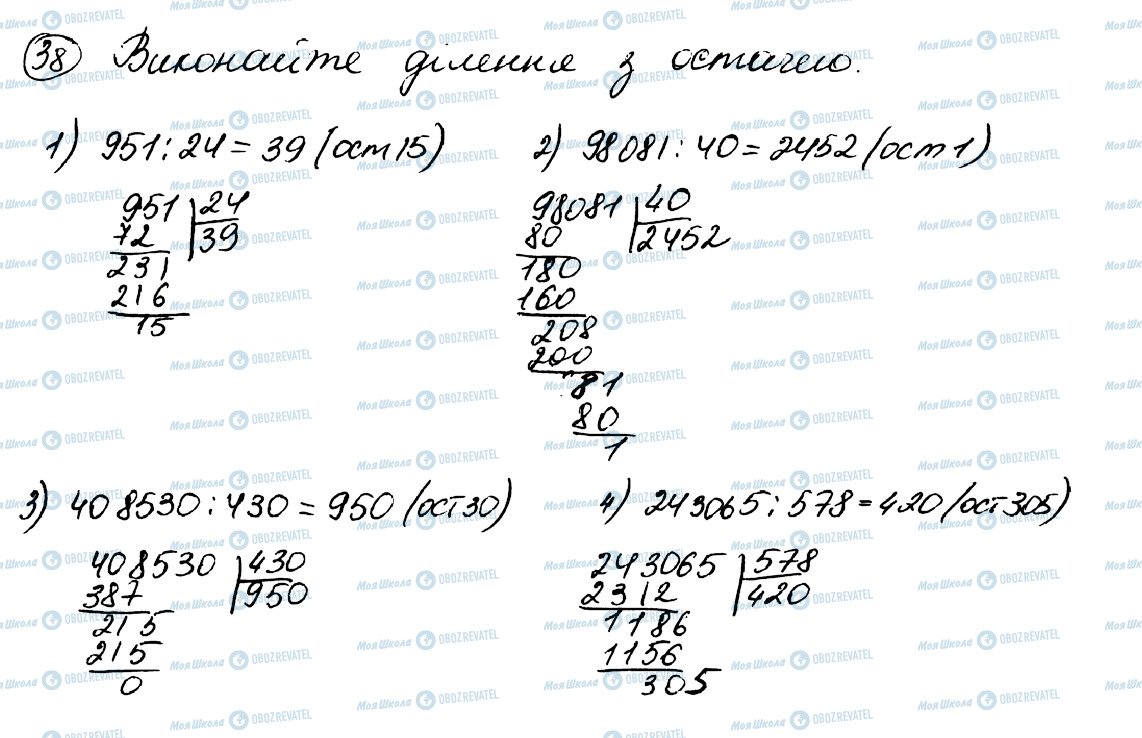 38 Виконайте ділення з остачею.
1) 951 : 24 = 39 (ост 15)
951 24
72 39
231
216
15
2) 98081 : 40 = 2452 (ост 1)
98081 40
80 2452
180
160
208
200
81
80
1
3) 408530 : 430 = 950 (ост 30)
408530 430
387 950
215
215
0
4) 243065 : 578 = 420 (ост 305)
243065 578
2312 420
1186
1156
305
Моя Школа OBOZREVATEL